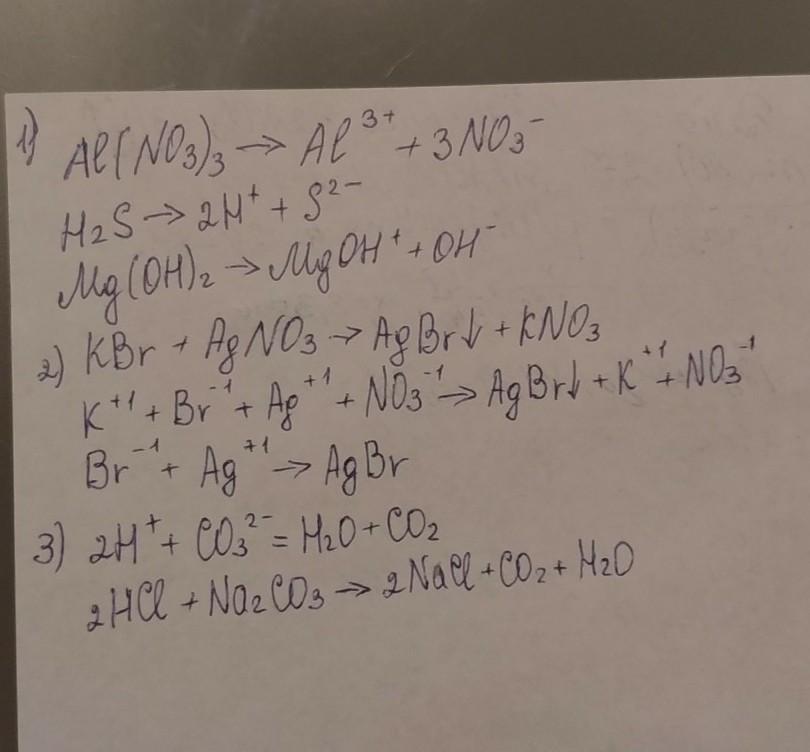 1) Al(NO₃)₃ → Al³⁺ + 3NO₃⁻
H₂S → 2H⁺ + S²⁻
Mg(OH)₂ → MgOH⁺ + OH⁻
2) KBr + AgNO₃ → AgBr↓ + KNO₃
K⁺¹ + Br⁻¹ + Ag⁺¹ + NO₃⁻¹ → AgBr↓ + K⁺¹ + NO₃⁻¹
Br⁻¹ + Ag⁺¹ → AgBr
3) 2H⁺ + CO₃²⁻ = H₂O + CO₂
2HCl + Na₂CO₃ → 2NaCl + CO₂ + H₂O